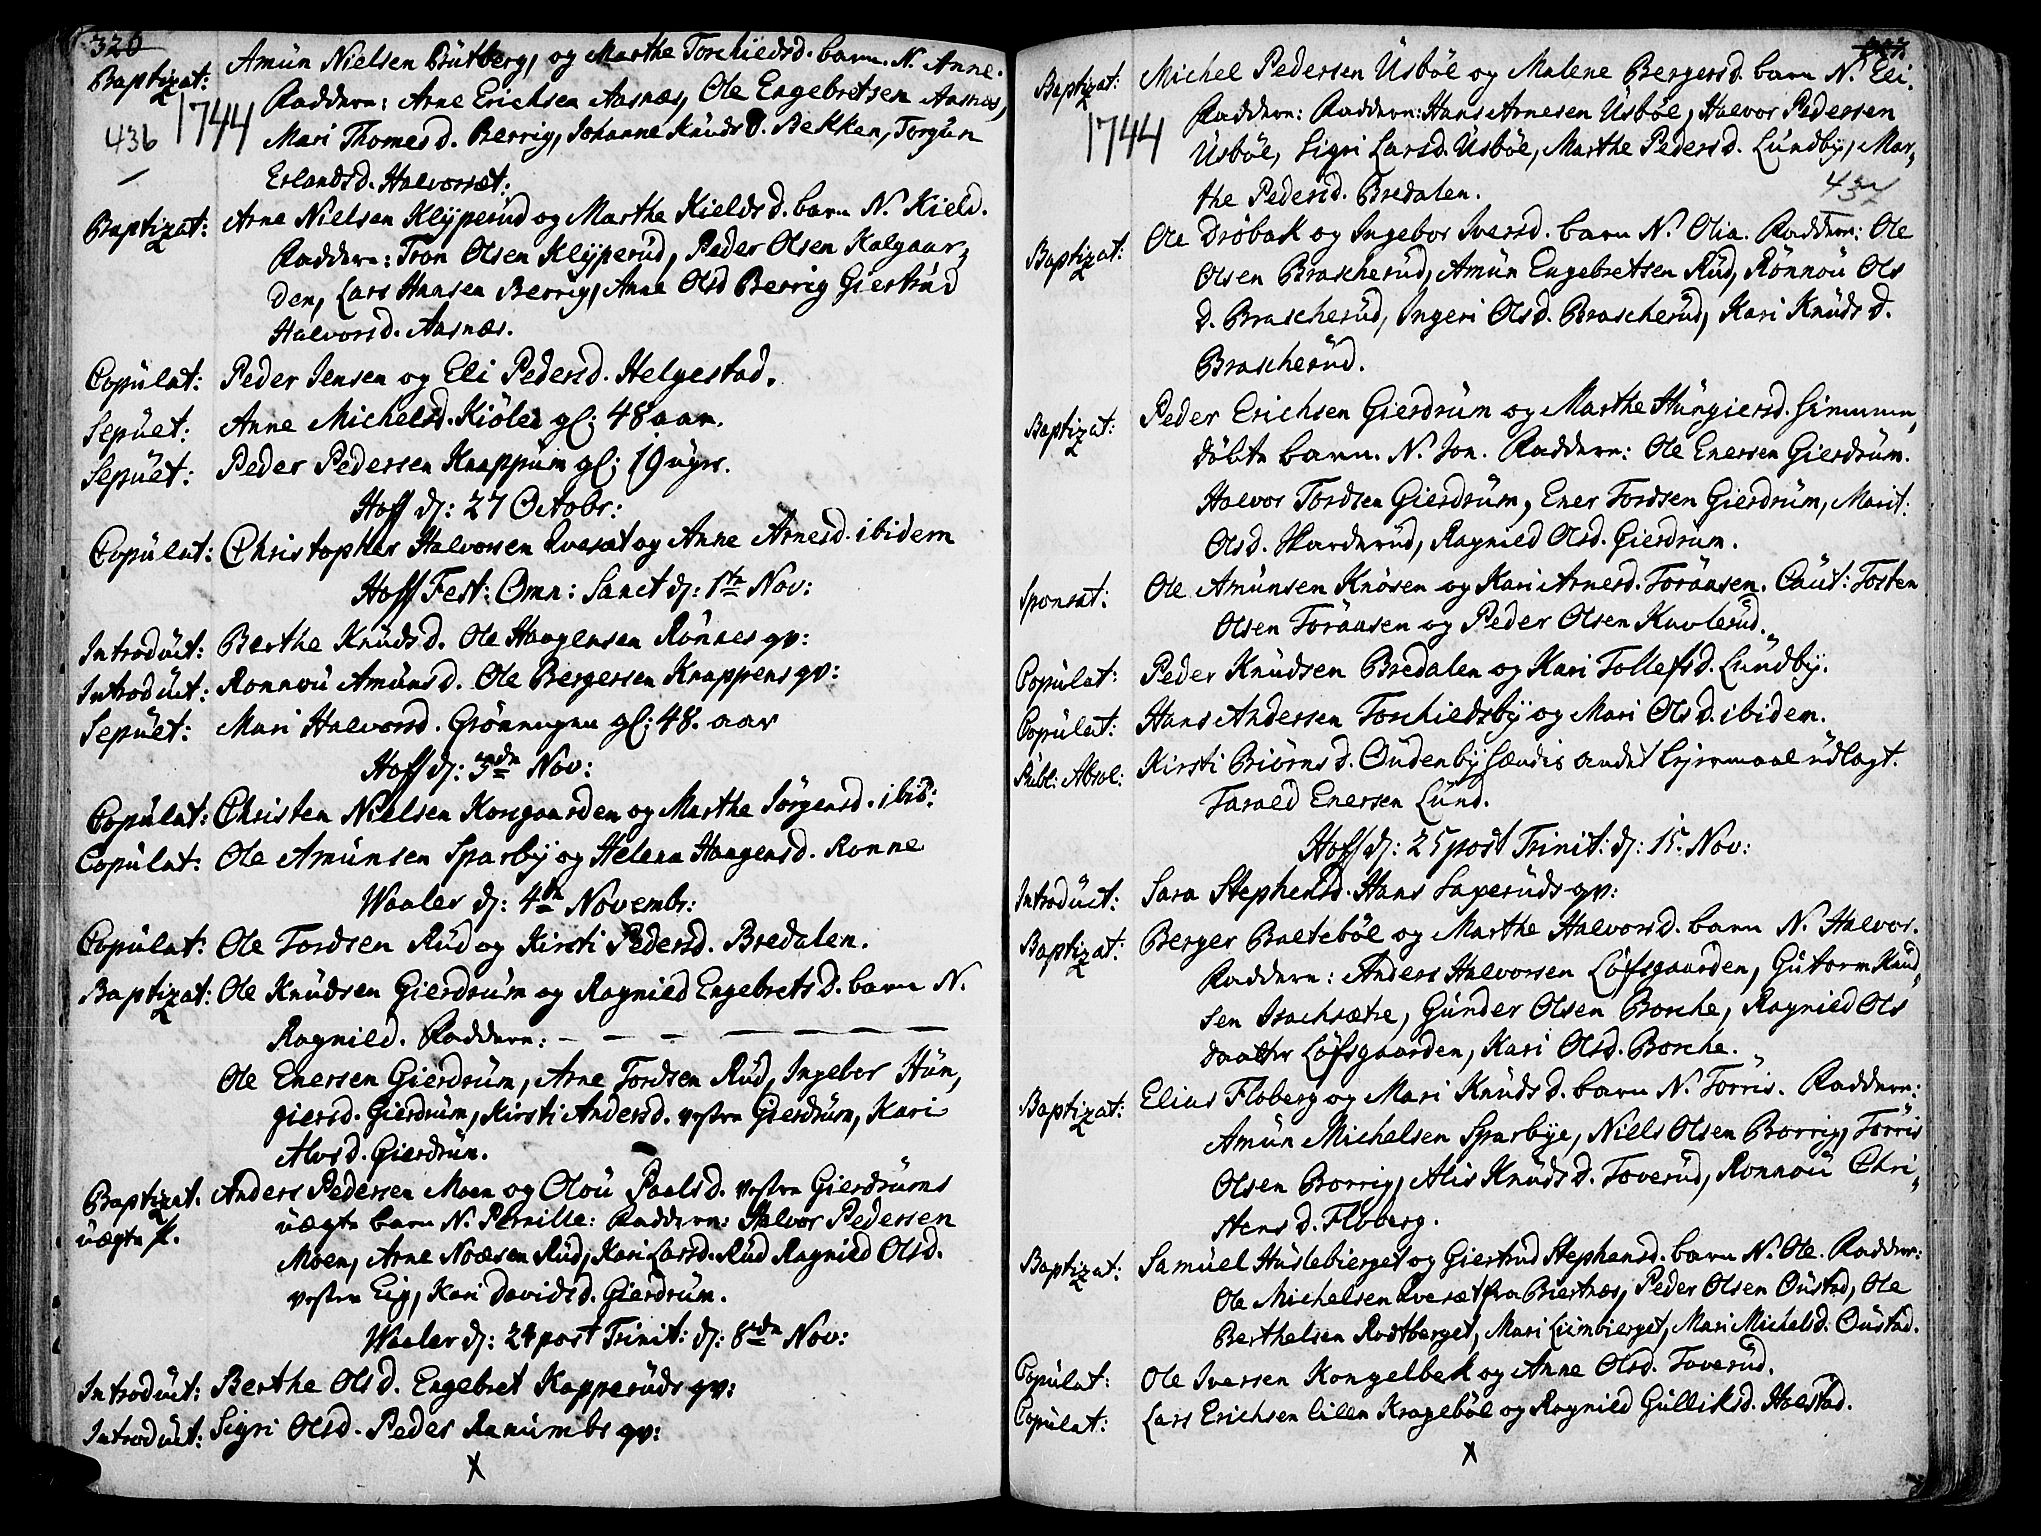 326
Baptizat: Amün Nielsen Bütberg, og Marthe Torchildsd. barn. N. Anne.
1744 Faddere: Arne Erichsen Aasnæs, Ole Engebretsen Aasnæs,
436 Mari Thomesd. Berrig, Johanne Knüdsd. Bekken, Torgün
Erlandsd. Halvorsæt:
Baptizat: Arne Nielsen Klÿperüd og Marthe Kieldsd. barn N. Kield.
Faddere: Tron Olsen Klÿperüd, Peder Olsen Kalgaar-
den, Lars Hansen Berrig, Anne Olsd Berrig Giertrüd
Halvorsd. Aasnæs.
Copülat: Peder Jensen og Eli Pedersd. Helgestad.
Sepüet: Anne Michelsd. Kiölen gl: 48 aar.
Sepüet: Peder Pedersen Knappüm gl: 19 uger.
Hoff d: 27 Octobr:
Copülat: Christopher Halvorsen Qvesæt og Anne Arnesd. ibidem
Hoff Fest: Omn: Sanct d: 1te Nov:
Introdüct: Berthe Knüdsd. Ole Haagensen Rönnes qv:
Introdüct: Ronnoü Amünsd. Ole Bergersen Knappens qv:
Sepüet: Mari Halvorsd. Grönengen gl: 48. aar
Hoff d: 3de Nov:
Copülat: Christen Nielsen Korsgaarden og Marthe Jörgensd. ibid:
Copülat: Ole Amünsen Sparbÿ og Helena Haagensd. Ronne
Waaler d: 4te Novembr:
Copülat: Ole Tordsen Rüd og Kirsti Pedersd. Bredalen.
Baptizat: Ole Knüdsen Gierdrüm og Ragnild Engebretsd. barn N.
Ragnild. Faddere: – – – – – – –
Ole Enersen Gierdrüm, Arne Tordsen Rüd, Ingebor Hün,
giersd. Gierdrüm, Kirsti Andersd. vestre Gierdrüm, Kari
Alvsd. Gierdrün.
Baptizat. Anders Pedersen Moen og Oloü Poelsd. vestre Gierdrüms
üægte barn N. Pernille: Faddere: Halvor Pedersen
üægte
Moen, Arne Noæsen Rüd, Kari Larsd. Rüd Ragnild Olsd.
vestre Eig, Kari Davidsd. Gierdrüm.
Waaler d: 24 post Trinit: d: 8de Nov:
Introdüct: Berthe Olsd. Engebret Kapperüds qv:
Introdüct: Sigri Olsd. Peder qv:
X
Baptizat: Michel Pedersen Üsböe og Malene Bergersd. barn N. Eli.
1744 Faddere: Faddere: Hans Arnesen Üsböe, Halvor Pedersen
Üsböe, Sigri Larsd. Üsböe, Marthe Pedersd. Lündbÿ, Mar,
the Pedersd. Bredalen.
437
Baptizat: Ole Dröbak og Ingebor Iversd. barn N. Olia. Faddere: Ole
Olsen Brascherüd, Amün Engebretsen Rüd, Rönnoü Ols
d. Brascherüd, Ingeri Olsd. Brascherüd, Kari Knüdsd.
Brascherüd.
Baptizat: Peder Erichsen Gierdrüm og Marthe Hüngiersd. hiemme,
döbte barn. N. Jon. Faddere: Ole Enersen Gierdrüm.
Halvor Tordsen Gierdrüm, Ener Tordsen Gierdrüm, Marit:
Olsd. Skarderüd, Ragnild Olsd. Gierdrüm.
Sponsat: Ole Amünsen Knösen og Kari Arnesd. Toråasen. Caüt: Tosten
Olsen Toråasen og Peder Olsen Kuvlerüd.
Copülat: Peder Knüdsen Bredalen og Kari Tollefsd. Lündbÿ.
Copülat: Hans Andersen Torchildsbÿ og Mari Olsd. ibidem.
Publ: Absol: Kirsti Biörnsd. Oüdenbÿ hendes andet leyermaal üdlagt.
Tarald Enersen Lünd.
Hoff d: 25 post Trinit: d: 15. Nov:
Introdüct: Sara Stephensd. Hans Saperüds qv:
Baptizat: Berger Baeteböl og Marthe Halvorsd. barn N. Halvor.
Faddere: Anders Halvorsen Löfsgaarden, Gütorm Knüd,
sen Isachsætre, Günder Olsen Borche, Ragnild Ols
daatter Löfsgaarden, Kari Olsd. Borche.
Baptizat: Elias Floberg og Mari Knüdsd. barn N. Törris. Faddere:
Amün Michelsen Sparbye, Niels Olsen Borrig, Törris
Olsen Borrig, Alis Knüdsd. Toverüd, Ronnoü Chri,
stensd. Floberg.
Baptizat: Samüel Hüslebierget og Giertrud Stephensd. barn N. Ole. Faddere:
Ole Michelsen Qvesæt fra Biertnæs, Peder Olsen Oüstad, Ole
Berthelsen Rodtberget, Mari Limbierget, Mari Michelsd. Oüstad.
Copülat: Ole Iversen Kongelbek og Anne Olsd. Toverüd.
Copülat: Lars Erichsen lille Krageböl og Ragnild Gülliksd. Holstad.
X